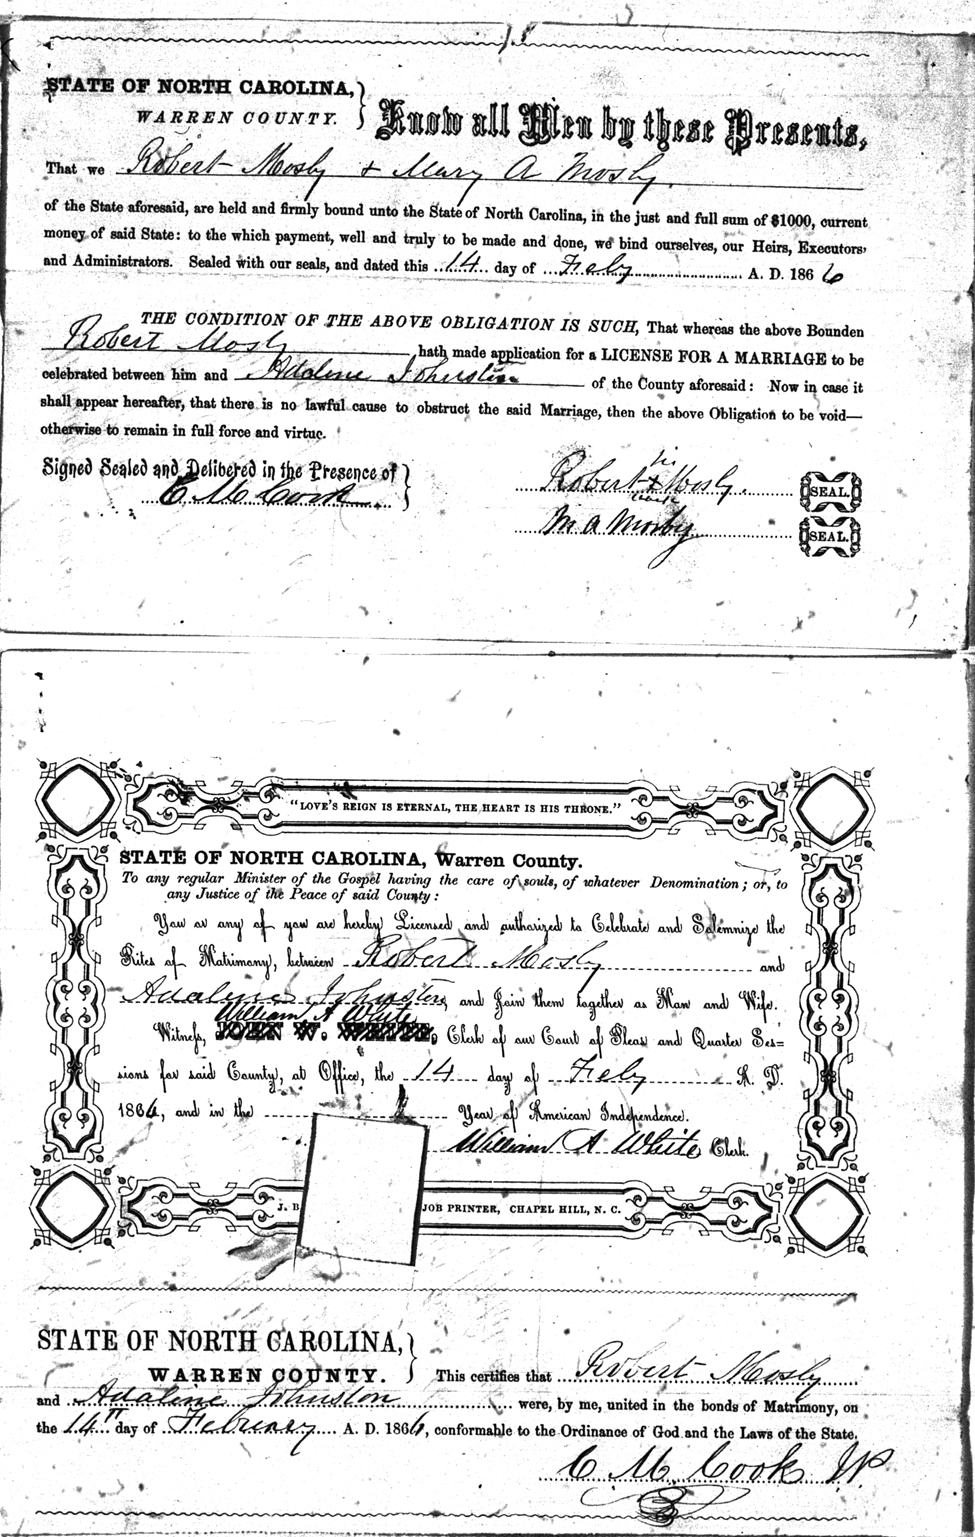 STATE OF NORTH CAROLINA,
WARREN COUNTY.
Know all Men by these Presents,
That we Robert Mosby & Mary A Mosby.
of the State aforesaid, are held and firmly bound unto the State of North Carolina, in the just and full sum of $1000, current
money of said State: to the which payment, well and truly to be made and done, we bind ourselves, our Heirs, Executors
and Administrators. Sealed with our seals, and dated this 14 day of Feby A. D. 1866
THE CONDITION OF THE ABOVE OBLIGATION IS SUCH, That whereas the above Bounden
Robert Mosby hath made application for a LICENSE FOR A MARRIAGE to be
celebrated between him and Adaline Johnston of the County aforesaid: Now in case it
shall appear hereafter, that there is no lawful cause to obstruct the said Marriage, then the above Obligation to be void—
otherwise to remain in full force and virtue.
Signed Sealed and Delibered in the Presence of
C M Cook
his
Robert X Mosby. SEAL.
mark
M A Mosby SEAL.
"LOVE'S REIGN IS ETERNAL, THE HEART IS HIS THRONE."
STATE OF NORTH CAROLINA, Warren County.
To any regular Minister of the Gospel having the care of souls, of whatever Denomination; or, to
any Justice of the Peace of said County:
You or any of you are hereby Licensed and authorized to Celebrate and Solemnize the
Rites of Matrimony, between Robert Mosby and
Adaline Johnston, and Join them together as Man and Wife.
William A White
Witness, JOHN W. WHITE, Clerk of our Court of Pleas and Quarter Ses=
sions for said County, at Office, the 14 day of Feby A. D.
1866, and in the Year of American Independence.
William A White Clerk.
J. B. JOB PRINTER, CHAPEL HILL, N. C.
STATE OF NORTH CAROLINA,
WARREN COUNTY.
This certifies that Robert Mosby
and Adaline Johnston were, by me, united in the bonds of Matrimony, on
the 14th day of February A. D. 1866, conformable to the Ordinance of God and the Laws of the State.
C. M. Cook JP